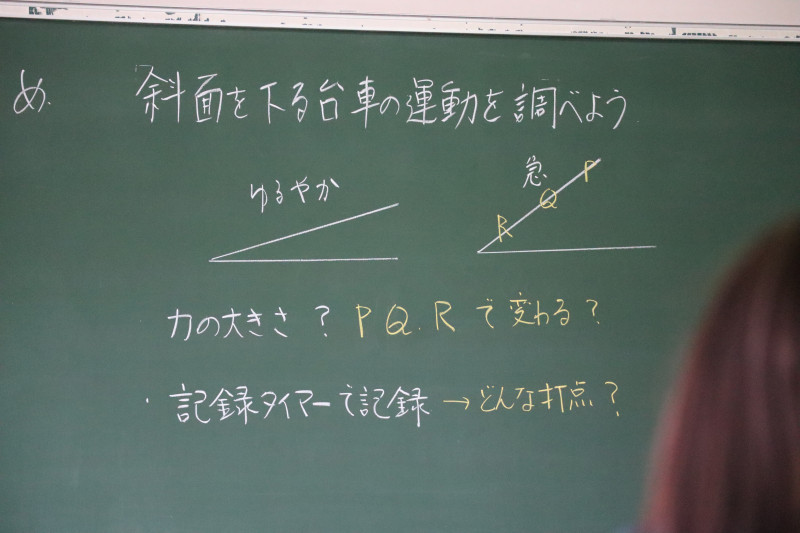 め.
斜面を下る台車の運動を調べよう
ゆるやか
急
P
Q
R
力の大きさ? P Q.Rで変わる?
・記録タイマーで記録→どんな打点?